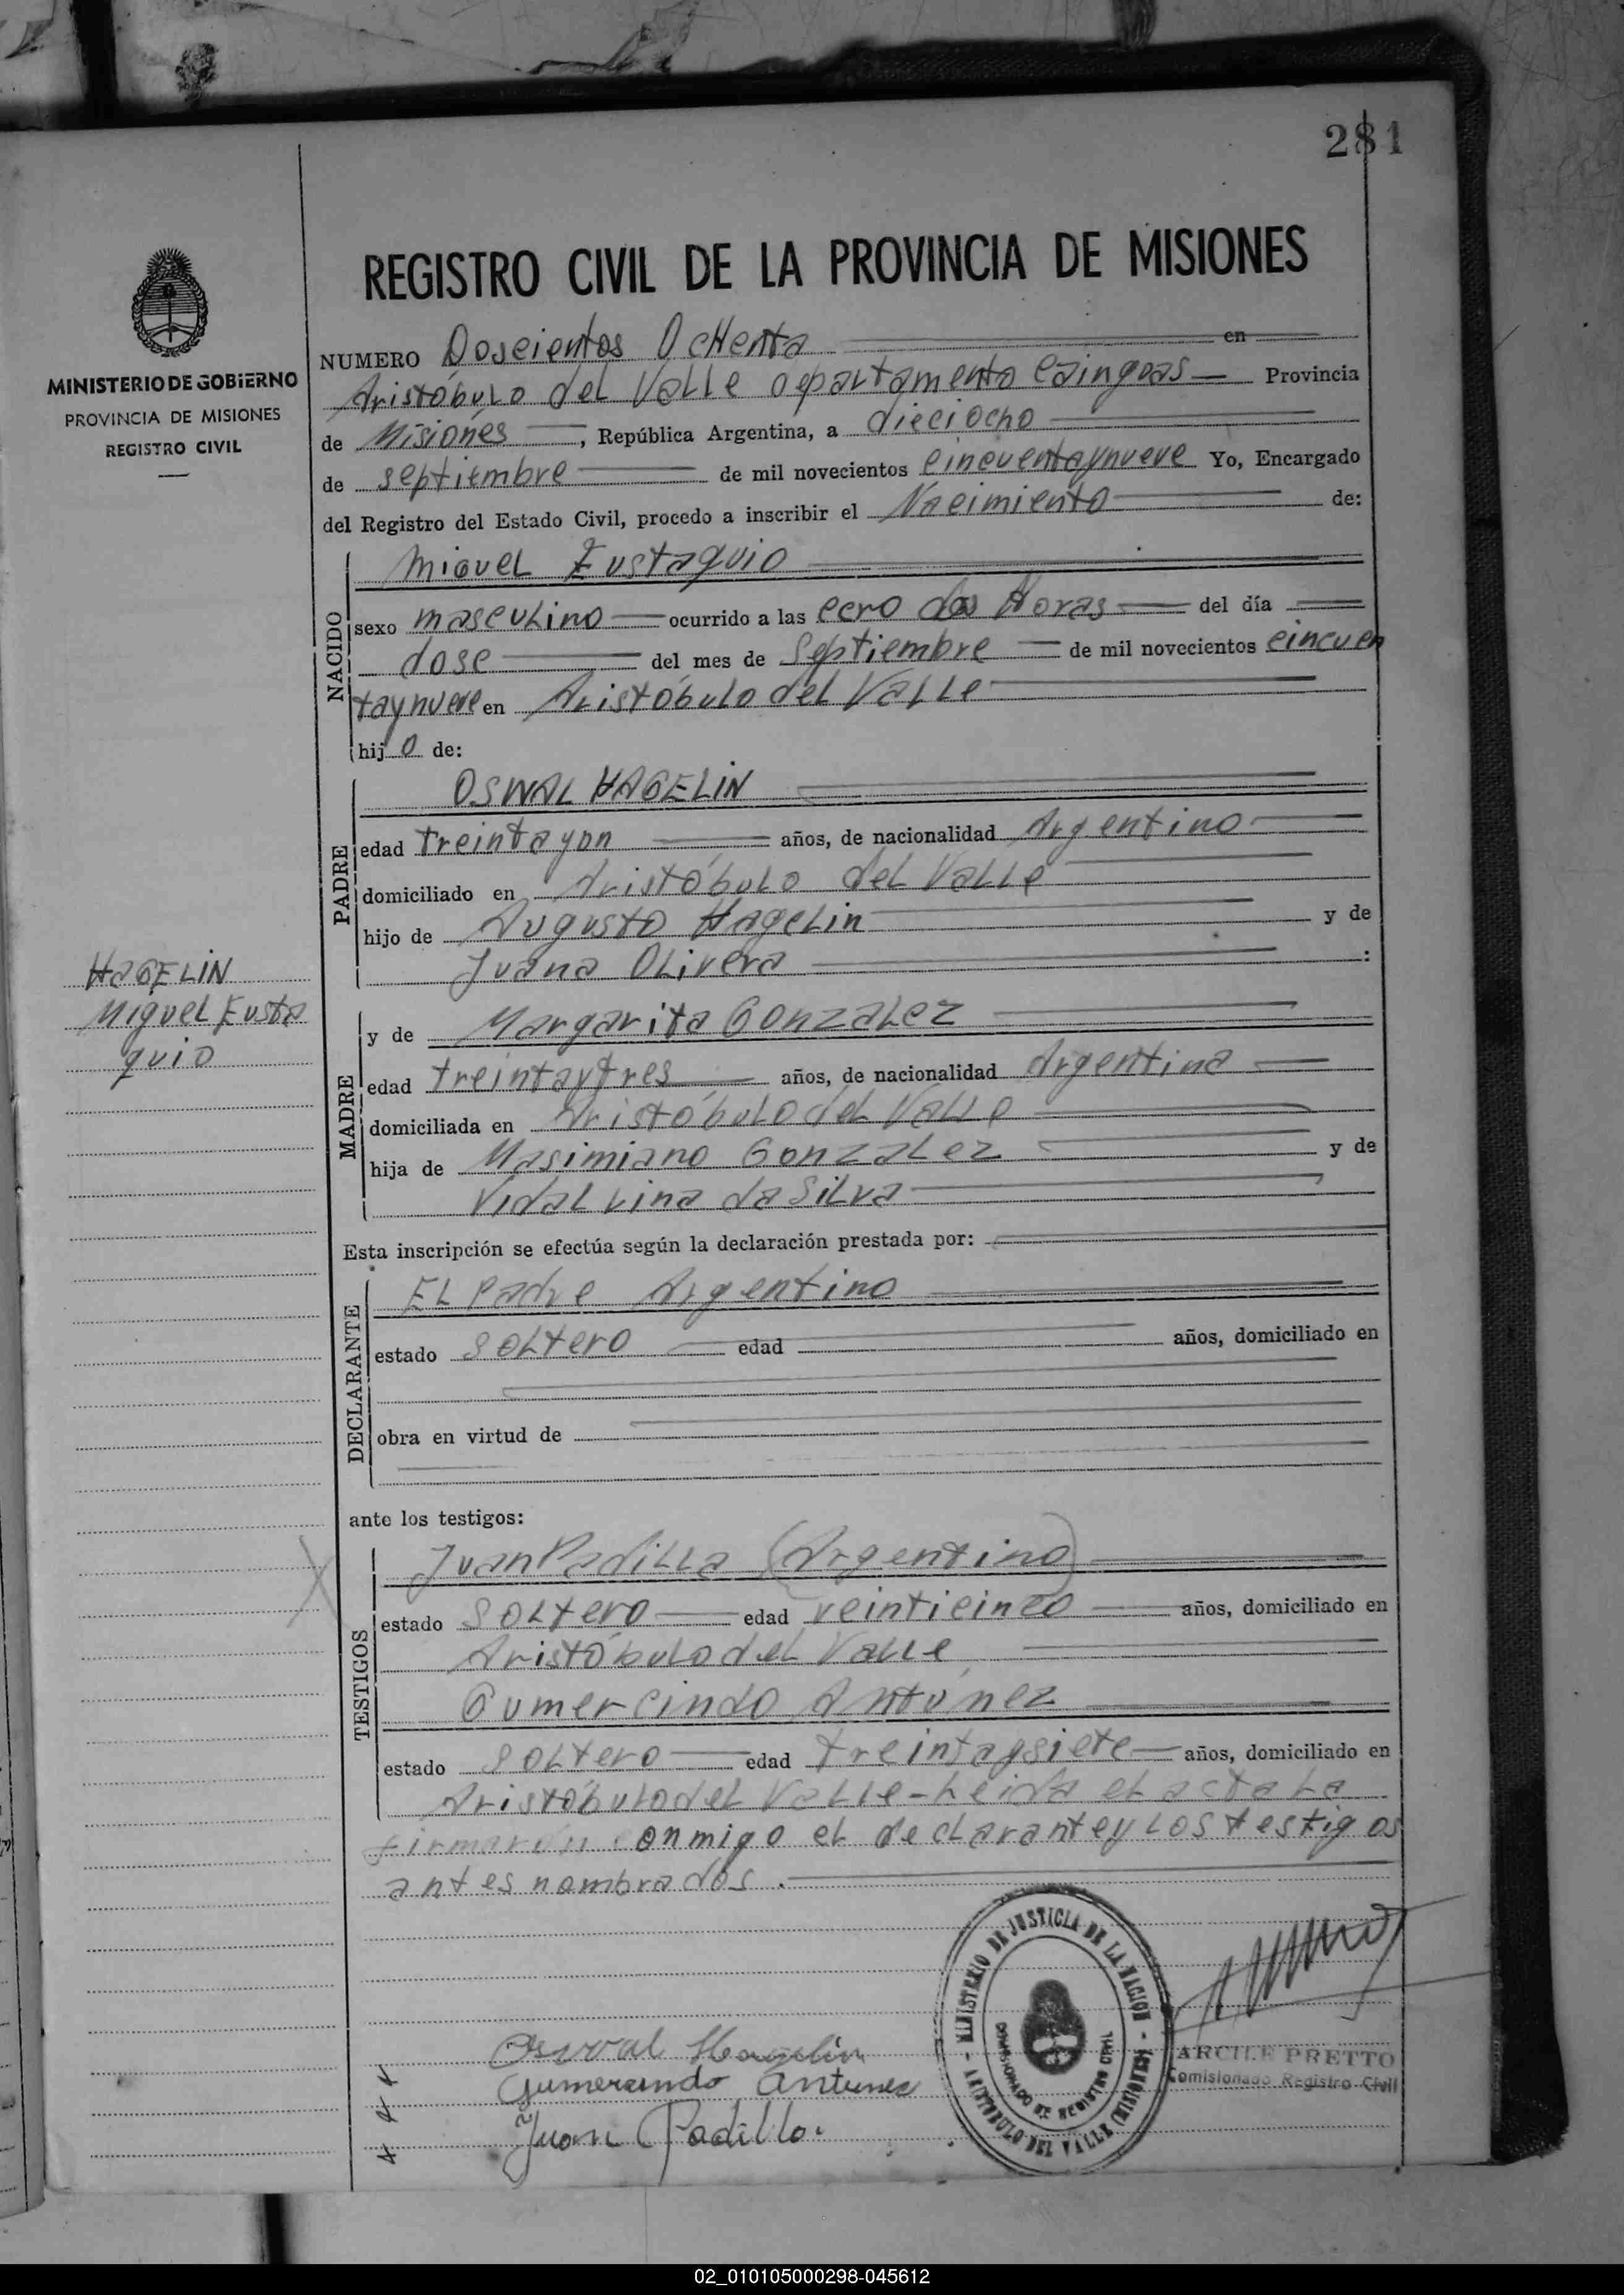 281
MINISTERIO DE GOBIERNO
PROVINCIA DE MISIONES
REGISTRO CIVIL
REGISTRO CIVIL DE LA PROVINCIA DE MISIONES
NUMERO Doscientos Ochenta en
Aristóbulo del Valle departamento Caingoas Provincia
de Misiones, República Argentina, a dieciocho
de septiembre de mil novecientos cincuentaynueve Yo, Encargado
del Registro del Estado Civil, procedo a inscribir el Nacimiento de:
NACIDO
Miguel Eustaquio
sexo masculino ocurrido a las cero dos Horas del día
dose del mes de Septiembre de mil novecientos cincuen
taynueve en Aristóbulo del Valle
hijo de:
PADRE
OSWAL HAGELIN
edad treintayun años, de nacionalidad Argentino
domiciliado en Aristóbulo del Valle
hijo de Augusto Hagelin y de
Juana Olivera :
HAGELIN
Miguel Eusta
quio
MADRE
y de Margarita Gonzalez
edad treintaytres años, de nacionalidad Argentina
domiciliada en Aristóbulo del Valle
hija de Masimiano Gonzalez y de
Vidalvina da Silva
Esta inscripción se efectúa según la declaración prestada por:
DECLARANTE
El Padre Argentino
estado soltero edad años, domiciliado en
obra en virtud de
ante los testigos:
TESTIGOS
Juan Padilla (Argentino)
estado soltero edad veinticinco años, domiciliado en
Aristóbulo del Valle
Gumercindo Antúnez
estado soltero edad treintaysiete años, domiciliado en
Aristóbulo del Valle - Leida el acta la
firmarón conmigo el declarante y los testigos
antes nombrados.
MINISTERIO DE JUSTICIA DE LA NACION - ARISTOBULO DEL VALLE (MISIONES) -
COMISIONADO DE REGISTRO CIVIL
Oswal Hagelin
Gumercindo Antunez
Juan Padilla
ARCILE PRETTO
Comisionado Registro Civil
02_010105000298-045612